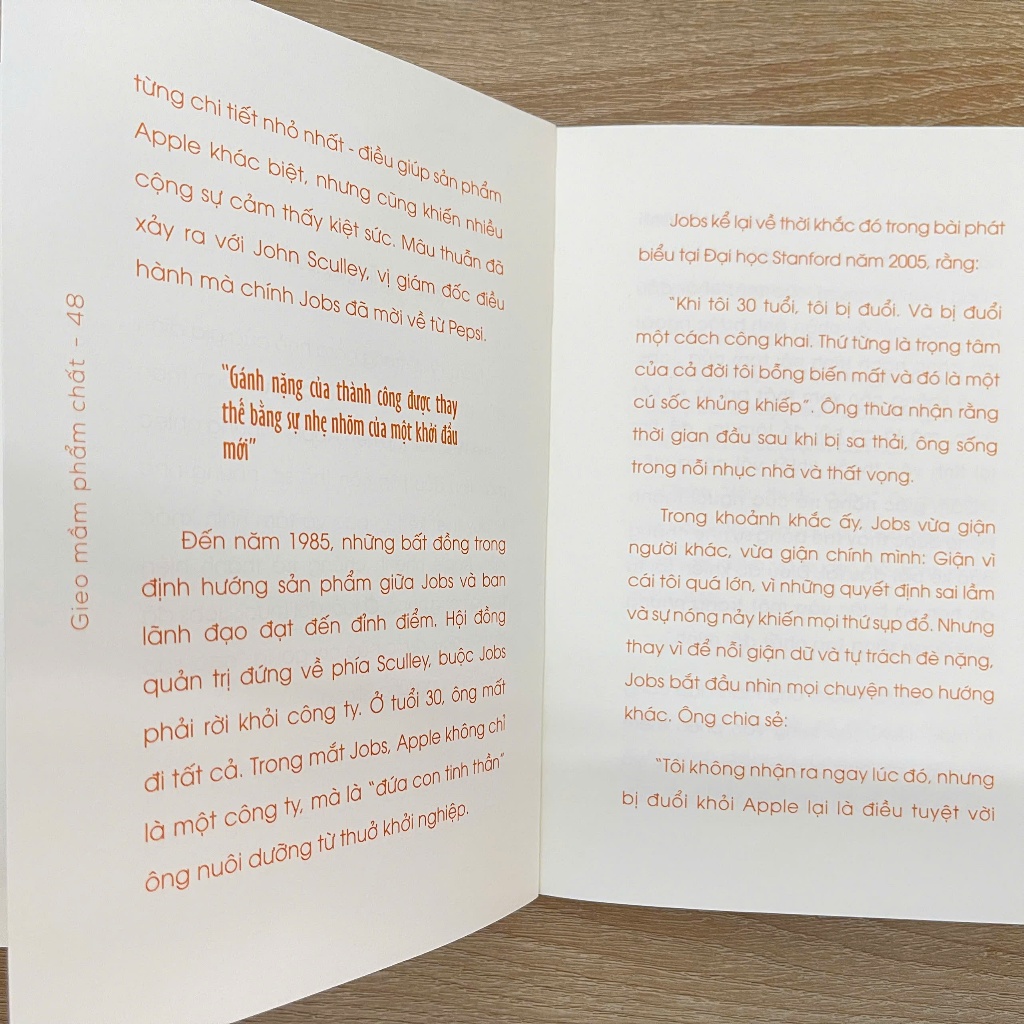 từng chi tiết nhỏ nhất - điều giúp sản phẩm
Apple khác biệt, nhưng cũng khiến nhiều
cộng sự cảm thấy kiệt sức. Mâu thuẫn đã
xảy ra với John Sculley, vị giám đốc điều
hành mà chính Jobs đã mời về từ Pepsi.
"Gánh nặng của thành công được thay
thế bằng sự nhẹ nhõm của một khởi đầu
mới"
Đến năm 1985, những bất đồng trong
định hướng sản phẩm giữa Jobs và ban
lãnh đạo đạt đến đỉnh điểm. Hội đồng
quản trị đứng về phía Sculley, buộc Jobs
phải rời khỏi công ty. Ở tuổi 30, ông mất
đi tất cả. Trong mắt Jobs, Apple không chỉ
là một công ty, mà là "đứa con tinh thần"
ông nuôi dưỡng từ thuở khởi nghiệp.
Gieo mầm phẩm chất - 48
Jobs kể lại về thời khắc đó trong bài phát
biểu tại Đại học Stanford năm 2005, rằng:
"Khi tôi 30 tuổi, tôi bị đuổi. Và bị đuổi
một cách công khai. Thứ từng là trọng tâm
của cả đời tôi bỗng biến mất và đó là một
cú sốc khủng khiếp". Ông thừa nhận rằng
thời gian đầu sau khi bị sa thải, ông sống
trong nỗi nhục nhã và thất vọng.
Trong khoảnh khắc ấy, Jobs vừa giận
người khác, vừa giận chính mình: Giận vì
cái tôi quá lớn, vì những quyết định sai lầm
và sự nóng nảy khiến mọi thứ sụp đổ. Nhưng
thay vì để nỗi giận dữ và tự trách đè nặng,
Jobs bắt đầu nhìn mọi chuyện theo hướng
khác. Ông chia sẻ:
"Tôi không nhận ra ngay lúc đó, nhưng
bị đuổi khỏi Apple lại là điều tuyệt vời